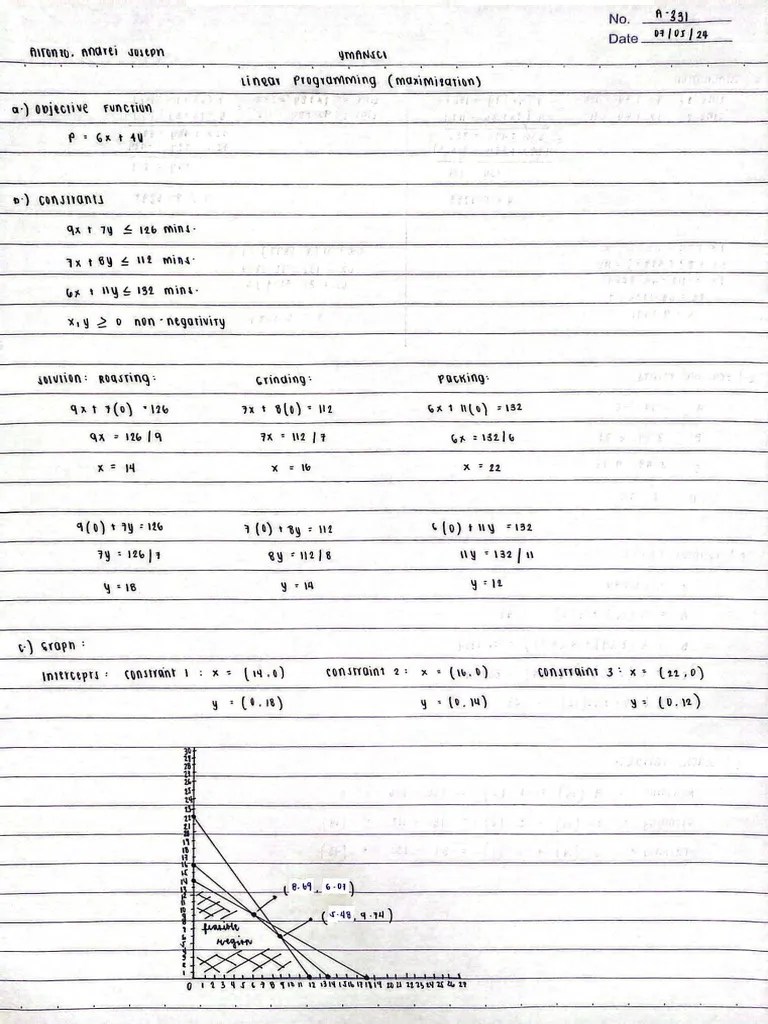 No. A-331
Date 07/05/24
Alfonzo, Andrei Joseph YMANSCI
Linear Programming (Maximization)
a.) Objective Function
P = 6x + 4y
b.) Constraints
9x + 7y ≤ 126 mins.
7x + 8y ≤ 112 mins.
6x + 11y ≤ 132 mins.
x, y ≥ 0 non-negativity
Solution: Roasting: Grinding: Packing:
9x + 7(0) = 126 7x + 8(0) = 112 6x + 11(0) = 132
9x = 126/9 7x = 112/7 6x = 132/6
x = 14 x = 16 x = 22
9(0) + 7y = 126 7(0) + 8y = 112 6(0) + 11y = 132
7y = 126/7 8y = 112/8 11y = 132/11
y = 18 y = 14 y = 12
c.) Graph:
Intercepts: Constraint 1: x = (14,0) Constraint 2: x = (16,0) Constraint 3: x = (22,0)
y = (0,18) y = (0,14) y = (0,12)
(8.69, 6.07)
(5.48, 9.74)
feasible
region
0 1 2 3 4 5 6 7 8 9 10 11 12 13 14 15 16 17 18 19